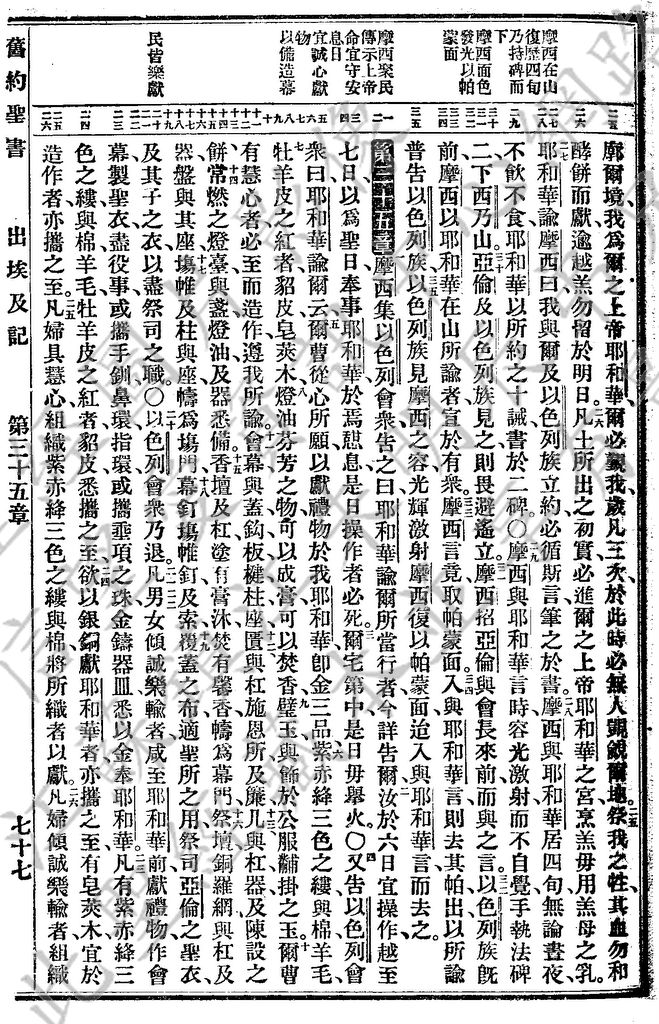 廓爾境我爲爾之上帝耶和華爾必覲我歲凡三次於此時必無人覬覦爾地祭我之牲其血勿和
酵餅而獻逾越羔勿留於明日凡土所出之初實必進爾之上帝耶和華之宮烹羔毋用羔母之乳
耶和華諭摩西曰我與爾及以色列族立約必循斯言筆之於書摩西與耶和華居四旬無論晝夜
不飲不食耶和華以所約之十誡書於二碑〇摩西與耶和華言時容光激射而不自覺手執法碑
二下西乃山亞倫及以色列族見之則畏避遙立摩西招亞倫與會長來前而與之言以色列族旣
前摩西以耶和華在山所諭者宣於有衆摩西言竟取帕蒙面入與耶和華言則去其帕出以所諭
普告以色列族以色列族見摩西之容光輝激射摩西復以帕蒙面迨入與耶和華言而去之
第三十五章摩西集以色列會衆告之曰耶和華諭爾所當行者今詳告爾汝於六日宜操作越至
七日以爲聖日奉事耶和華於焉憩息是日操作者必死爾宅第中是日毋舉火〇又告以色列會
衆曰耶和華諭爾云爾曹從心所願以獻禮物於我耶和華卽金三品紫赤絳三色之縷與棉羊毛
牡羊皮之紅者貂皮皂莢木燈油芬芳之物可以成膏可以焚香璧玉與飾於公服黼掛之玉爾曹
有慧心者必至而造作遵我所諭會幕與蓋鈎板楗柱座匱與杠施恩所及簾几與杠器及陳設之
餅常燃之燈臺與盞燈油及器悉備香壇及杠塗有膏沐焚有馨香幬爲幕門祭壇銅羅網與杠及
器盤與其座塲帷及柱與座幬爲塲門幕釘塲帷釘及索覆蓋之布適聖所之用祭司亞倫之聖衣
及其子之衣以盡祭司之職〇以色列會衆乃退凡男女傾誠樂輸者咸至耶和華前獻禮物作會
幕製聖衣盡役事或攜手釧鼻環指環或攜垂項之珠金鑄器皿悉以金奉耶和華凡有紫赤絳三
色之縷與棉羊毛牡羊皮之紅者貂皮悉攜之至欲以銀銅獻耶和華者亦攜之至有皂莢木宜於
造作者亦攜之至凡婦具慧心組織紫赤絳三色之縷與棉將所織者以獻凡婦傾誠樂輸者組織
摩西在山
復歷四旬
乃持碑而
下
摩西面色
發光以帕
蒙面
摩西聚民
傳示上帝
命宜守安
息日
宜誠心獻
物
以備造幕
民皆樂獻
舊約聖書 出埃及記 第三十五章 七十七